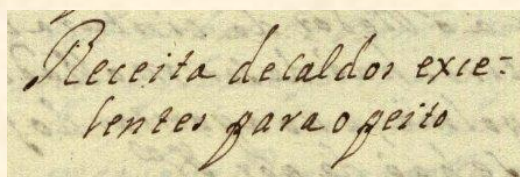 Receita decaldos exce=
lentes para o peito